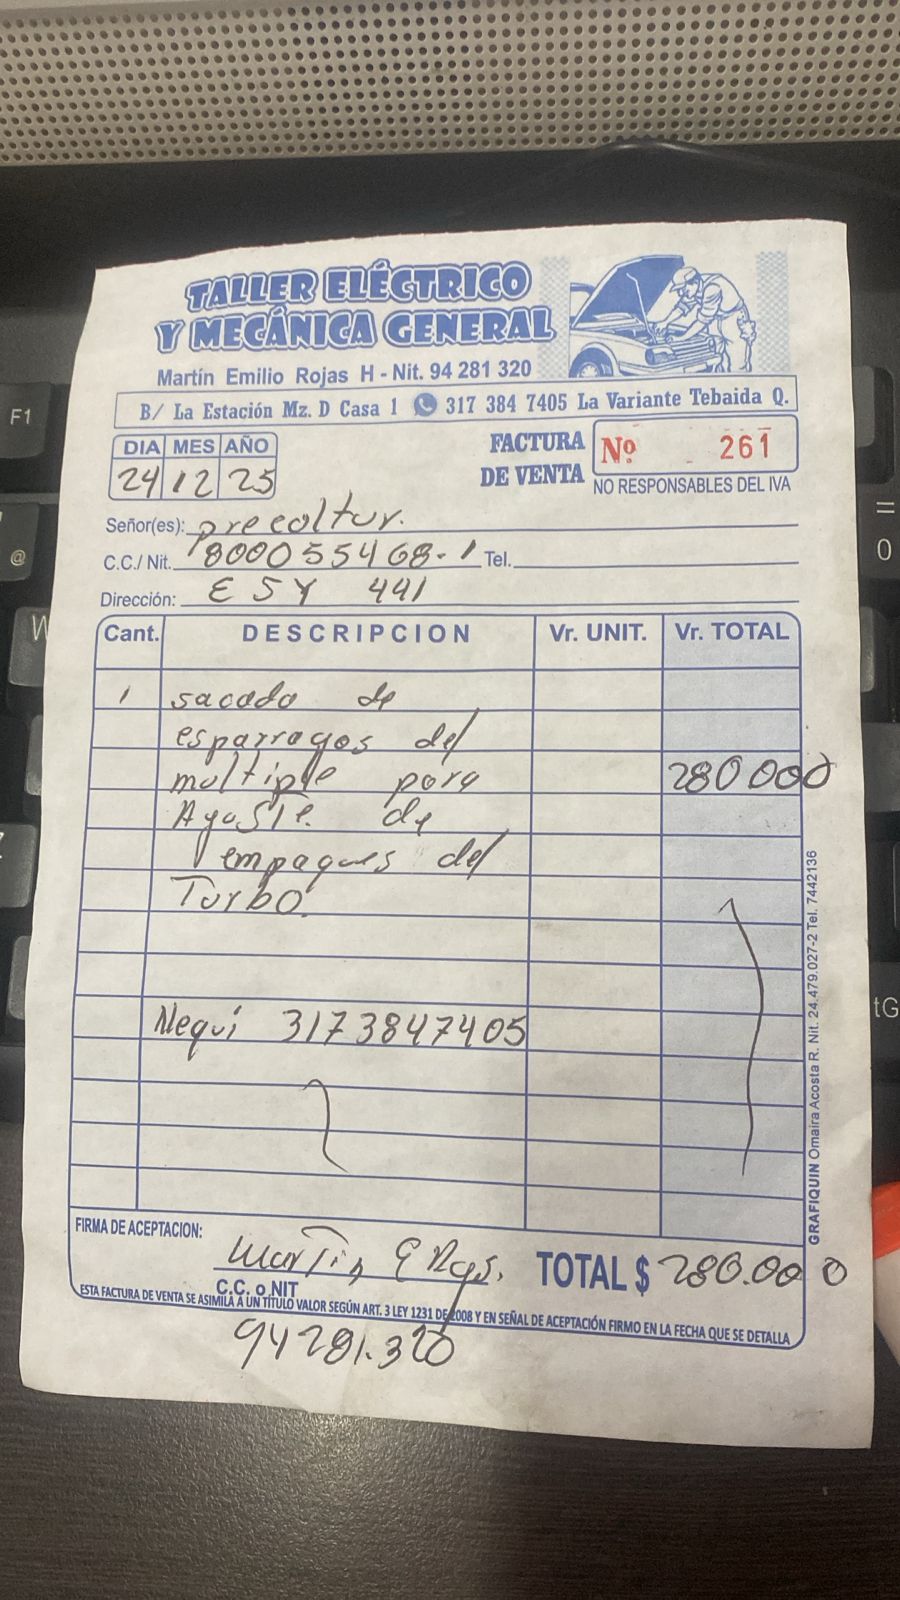 TALLER ELÉCTRICO
Y MECÁNICA GENERAL
Martín Emilio Rojas H - Nit. 94 281 320
B/ La Estación Mz. D Casa 1 317 384 7405 La Variante Tebaida Q.
DIA MES AÑO
24 12 25
FACTURA DE VENTA Nº 261
NO RESPONSABLES DEL IVA
Señor(es): precoltur.
C.C./ Nit. 800055468-1 Tel.
Dirección: ESY 441
Cant. DESCRIPCION Vr. UNIT. Vr. TOTAL
1 sacada de
esparragos del
multiple para 280 000
Ajuste. de
empaques del
Turbo.
Nequi 3173847405
FIRMA DE ACEPTACION:
Martin E TOTAL $ 280.000
C.C. o NIT
ESTA FACTURA DE VENTA SE ASIMILA A UN TÍTULO VALOR SEGÚN ART. 3 LEY 1231 DE 2008 Y EN SEÑAL DE ACEPTACIÓN FIRMO EN LA FECHA QUE SE DETALLA
94281.320
GRAFIQUIN Omaira Acosta R. Nit. 24.479.027-2 Tel. 7442136
F1
@
W
=
0
tG